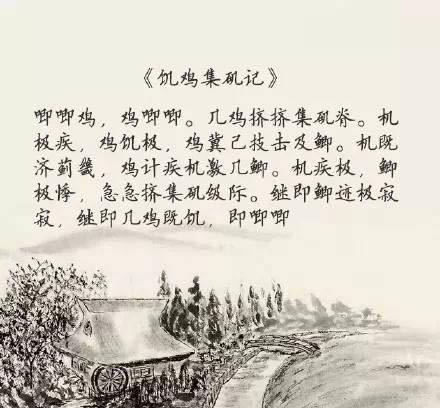 《饥鸡集矶记》
唧唧鸡，鸡唧唧。几鸡挤挤集矶脊。机
极疾，鸡饥极，鸡冀己技击及鲫。机既
济蓟畿，鸡计疾机激几鲫。机疾极，鲫
极悸，急急挤集矶级际。继即鲫迹极寂
寂，继即几鸡既饥，即唧唧